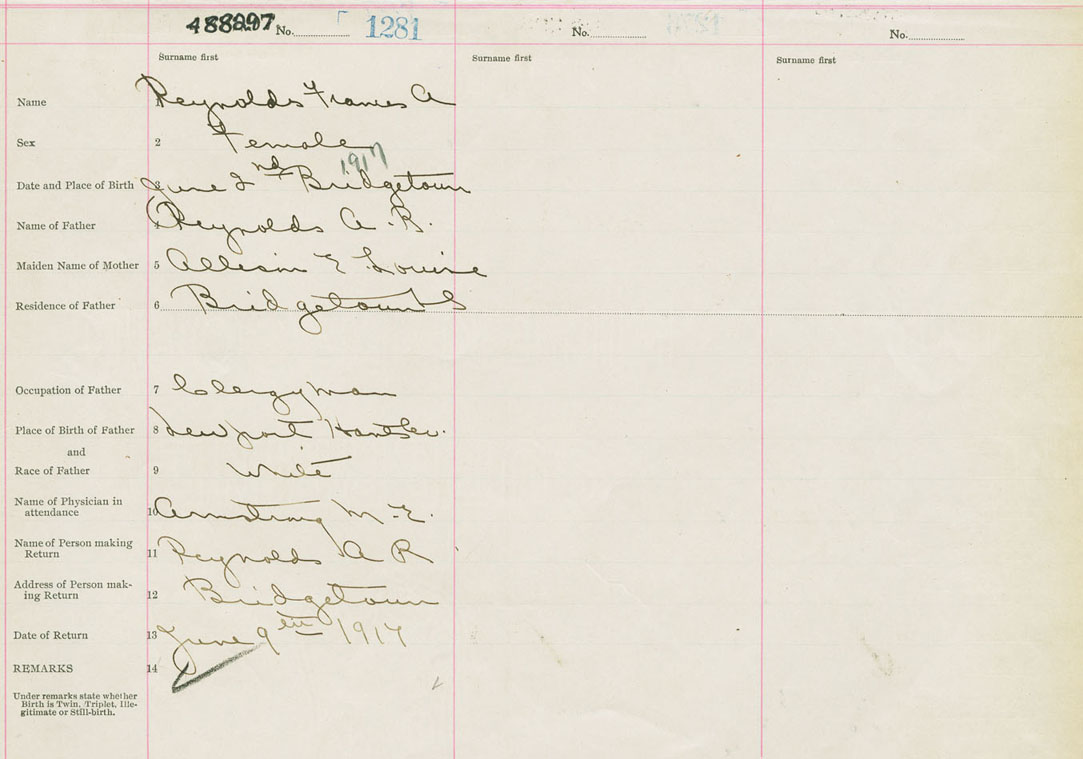 488297 No. 1281 No. No.
Surname first Surname first Surname first
Name 1 Reynolds Frances A
Sex 2 Female
1917
Date and Place of Birth 3 June 2nd Bridgetown
Name of Father 4 Reynolds A. R.
Maiden Name of Mother 5 Allison E Louise
Residence of Father 6 Bridgetown
Occupation of Father 7 Clergyman
Place of Birth of Father 8 Newport Hants Co.
and
Race of Father 9 White
Name of Physician in
attendance 10 Armstrong M. E.
Name of Person making
Return 11 Reynolds A R
Address of Person mak-
ing Return 12 Bridgetown
Date of Return 13 June 9th 1917
REMARKS 14
Under remarks state whether
Birth is Twin, Triplet, Ille-
gitimate or Still-birth.